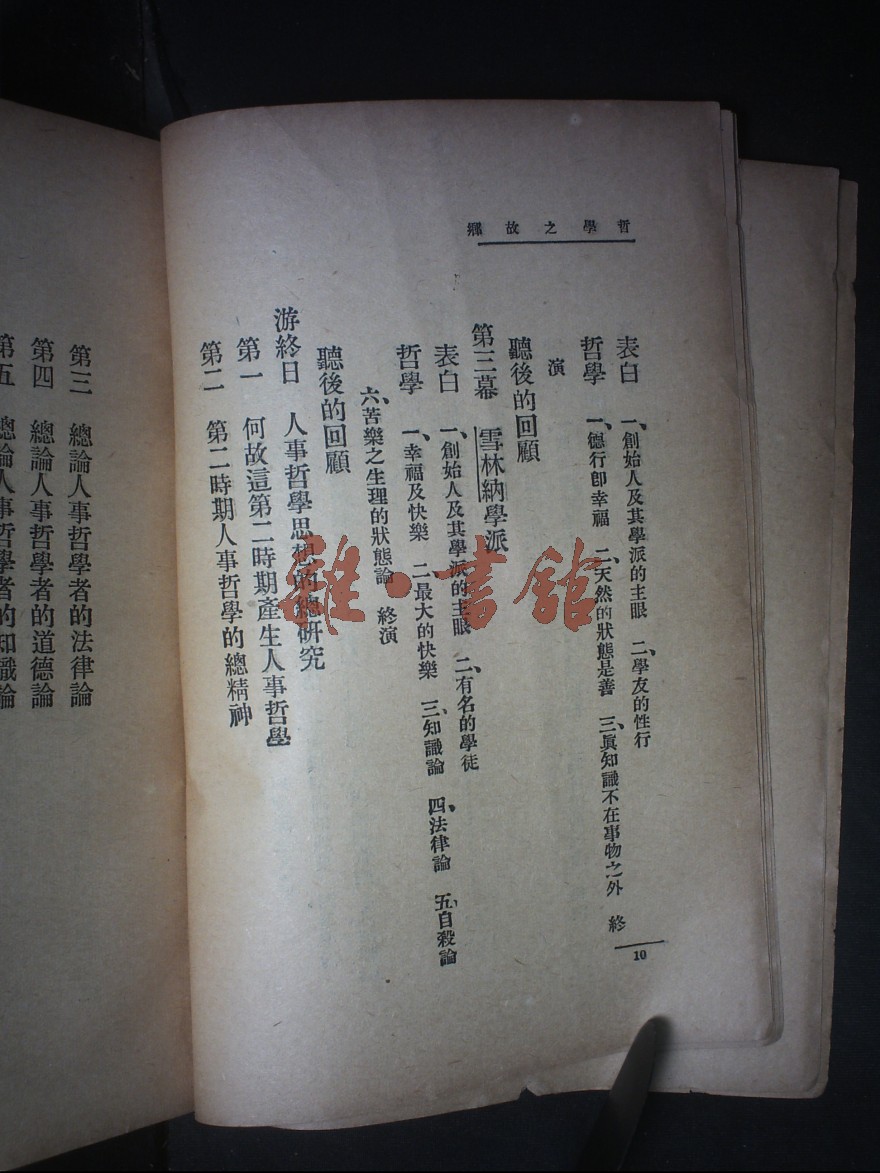 哲學之故鄉
表白　一、創始人及其學派的主眼　二、學友的性行
哲學　一、德行卽幸福　二、天然的狀態是善　三、眞知識不在事物之外　終
演
聽後的回顧
第三幕　雪林納學派
表白　一、創始人及其學派的主眼　二、有名的學徒
哲學　一、幸福及快樂　二、最大的快樂　三、知識論　四、法律論　五、自殺論
六、苦樂之生理的狀態論　終演
聽後的回顧
游終日　人事哲學思想的總研究
第一　何故這第二時期產生人事哲學
第二　第二時期人事哲學的總精神
10
第三　總論人事哲學者的法律論
第四　總論人事哲學者的道德論
第五　總論人事哲學者的知識論
雜·書館